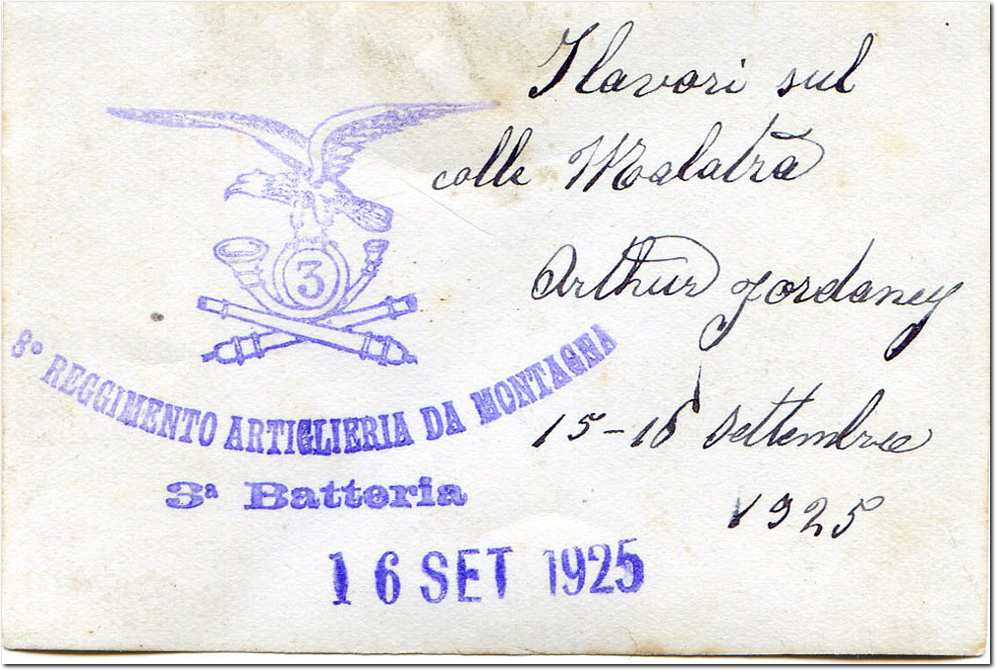 I lavori sul
colle Malatrà
Arthur Jordaney
15-16 Settembre
1925
3
3° REGGIMENTO ARTIGLIERIA DA MONTAGNA
3ª Batteria
16 SET 1925